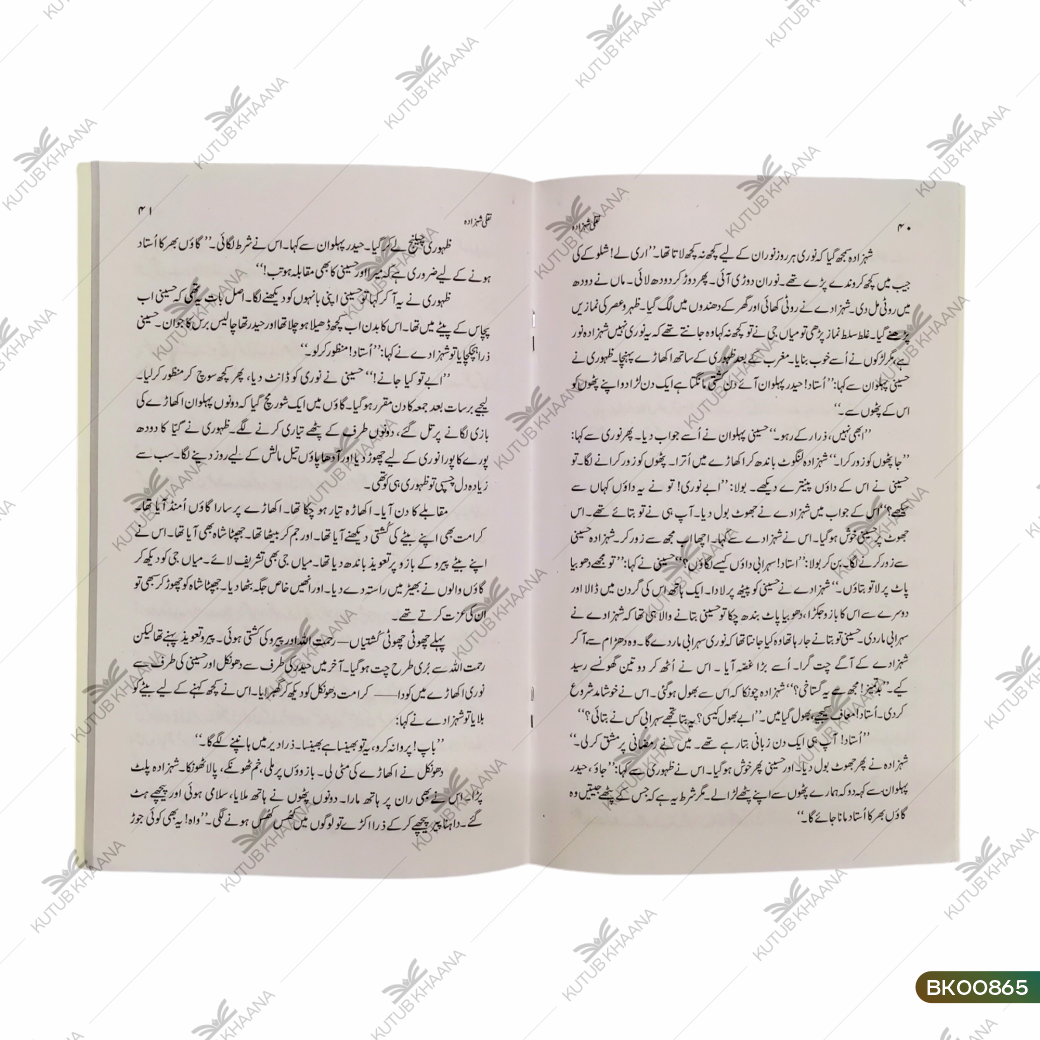 ۴۰
نقلی شہزادہ
شہزادہ سمجھ گیا کہ نوری ہر روز نوران کے لیے کچھ نہ کچھ لاتا تھا۔ ”اری لے! شلوکے کی
جیب میں کچھ کروندے پڑے تھے۔ نوران دوڑی آئی۔ پھر دوڑ کر دودھ لائی۔ ماں نے دودھ
میں روٹی مل دی۔ شہزادے نے روٹی کھائی اور گھر کے دھندوں میں لگ گیا۔ ظہر و عصر کی نمازیں
پڑھنے گیا۔ غلط سلط نماز پڑھی تو میاں جی نے تو کچھ نہ کہا وہ جانتے تھے کہ یہ نوری نہیں شہزادہ نور
ہے، مگر لڑکوں نے اُسے خوب بنایا۔ مغرب کے بعد ظہوری کے ساتھ اکھاڑے پہنچا۔ ظہوری نے
حسینی پہلوان سے کہا: ”اُستاد! حیدر پہلوان آئے دن کشتی مانگتا ہے ایک دن لڑا دو اپنے پٹھوں کو
اس کے پٹھوں سے۔“
”ابھی نہیں، ذرا رکے رہو۔“ حسینی پہلوان نے اُسے جواب دیا۔ پھر نوری سے کہا:
”جا پٹھوں کو زور کرا۔“ شہزادہ لنگوٹ باندھ کر اکھاڑے میں اُترا۔ پٹھوں کو زور کرانے لگا۔ تو
حسینی نے اس کے داؤں پینترے دیکھے۔ بولا: ”ابے نوری! تو نے یہ داؤں کہاں سے
سیکھے؟“ اس کے جواب میں شہزادے نے جھوٹ بول دیا۔ آپ ہی نے تو بتائے تھے۔ اس
جھوٹ پر حسینی خوش ہو گیا۔ اس نے شہزادے سے کہا۔ اچھا اب مجھ سے زور کر۔ شہزادہ حسینی
سے زور کرنے لگا۔ بن کر بولا: ”اُستاد! سہرابی داؤں کیسے لگاؤں؟“ حسینی نے کہا: ”تو مجھے دھوبیا
پاٹ پر لا تو بتاؤں۔“ شہزادے نے حسینی کو پیٹھ پر لادا۔ ایک ہاتھ اس کی گردن میں ڈالا اور
دوسرے سے اس کا بازو جکڑا، دھوبیا پاٹ بندھ چکا تو حسینی بتانے والا ہی تھا کہ شہزادے نے
سہرابی مار دی۔ حسینی تو بتانے جا رہا تھا وہ کیا جانتا تھا کہ نوری سہرابی مار دے گا۔ وہ دھڑام سے آ کر
شہزادے کے آگے چت گرا۔ اُسے بڑا غصہ آیا۔ اس نے اُٹھ کر دو تین گھونسے رسید
کیے۔ ”بدتمیز! مجھ سے یہ گستاخی؟“ شہزادہ چونکا کہ اس سے بھول ہو گئی۔ اس نے خوشامد شروع
کر دی۔ اُستاد! معاف کیجیے، بھول گیا میں۔ ”ابے بھول کیسی؟ یہ بتا تجھے سہرابی کس نے بتائی؟“
”اُستاد! آپ ہی ایک دن زبانی بتا رہے تھے۔ میں نے رمضانی پر مشق کر لی۔“
شہزادہ نے پھر جھوٹ بول دیا۔ اور حسینی پھر خوش ہو گیا۔ اس نے ظہوری سے کہا: ”جاؤ، حیدر
پہلوان سے کہہ دو کہ ہمارے پٹھوں سے اپنے پٹھے لڑالے۔ مگر شرط یہ ہے کہ جس کے پٹھے جیتیں وہ
گاؤں بھر کا اُستاد مانا جائے گا۔“
نقلی شہزادہ
۴۱
ظہوری چیلنج لے کر گیا۔ حیدر پہلوان سے کہا۔ اس نے شرط لگائی۔ ”گاؤں بھر کا اُستاد
ہونے کے لیے ضروری ہے کہ میرا اور حسینی کا بھی مقابلہ ہو تب!“
ظہوری نے یہ آ کر کہا تو حسینی اپنی بانہوں کو دیکھنے لگا۔ اصل بات یہ تھی کہ حسینی اب
پچاس کے پیٹے میں تھا۔ اس کا بدن اب کچھ ڈھیلا ہو چلا تھا اور حیدر تھا چالیس برس کا جوان۔ حسینی
ذرا ہچکچایا تو شہزادے نے کہا: ”اُستاد! منظور کرلو۔“
”ابے تو کیا جانے!“ حسینی نے نوری کو ڈانٹ دیا، پھر کچھ سوچ کر منظور کرلیا۔
لیجیے برسات بعد جمعہ کا دن مقرر ہو گیا۔ گاؤں میں ایک شور مچ گیا کہ دونوں پہلوان اکھاڑے کی
بازی لگانے پر تل گئے، دونوں طرف کے پٹھے تیاری کرنے لگے۔ ظہوری نے گیّا کا دودھ
پورے کا پورا نوری کے لیے چھوڑ دیا اور آدھا پاؤں تیل مالش کے لیے روز دینے لگا۔ سب سے
زیادہ دل چسپی تو ظہوری ہی کو تھی۔
مقابلے کا دن آیا۔ اکھاڑہ تیار ہو چکا تھا۔ اکھاڑے پر سارا گاؤں اُمنڈ آیا تھا۔
کرامت بھی اپنے بیٹے کی کُشتی دیکھنے آیا تھا۔ اور جم کر بیٹھا تھا۔ جھپٹا شاہ بھی آیا تھا۔ اس نے
اپنے بیٹے پیرو کے بازو پر تعویذ باندھ دیا تھا۔ میاں جی بھی تشریف لائے۔ میاں جی کو دیکھ کر
گاؤں والوں نے بھیڑ میں راستہ دے دیا۔ اور انھیں خاص جگہ بٹھا دیا۔ جھپٹا شاہ کو چھوڑ کر سبھی تو
ان کی عزت کرتے تھے۔
پہلے چھوٹی چھوٹی کُشتیاں — رحمت اللہ اور پیرو کی کشتی ہوئی۔ پیرو تعویذ پہنے تھا لیکن
رحمت اللہ سے بُری طرح چت ہو گیا۔ آخر میں حیدر کی طرف سے دھونکل اور حسینی کی طرف سے
نوری اکھاڑے میں کودا — کرامت دھونکل کو دیکھ کر گھبرایا۔ اس نے کچھ کہنے کے لیے بیٹے کو
بلایا تو شہزادے نے کہا:
”باپ! پروا نہ کرو، یہ تو بھینسا ہے بھینسا۔ ذرا دیر میں ہانپنے لگے گا۔“
دھونکل نے اکھاڑے کی مٹی لی۔ بازوؤں پر ملی، خم ٹھونکے، پالا ٹھونکا۔ شہزادہ پلٹ
پڑا۔ اس نے بھی ران پر ہاتھ مارا۔ دونوں پٹھوں نے ہاتھ ملایا، سلامی ہوئی اور پیچھے ہٹ
گئے۔ داہنا پیر پیچھے کر کے ذرا اکڑے تو لوگوں میں کھُس کھُس ہونے لگی۔ ”واہ! یہ بھی کوئی جوڑ
KUTUB KHAANA
BK00865